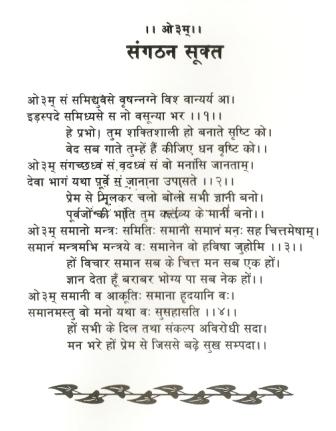 ।। ओ३म्।।
संगठन सूक्त
ओ३म् सं समिद्युवसे वृषन्नग्ने विश्व वान्यर्य आ।
इड़स्पदे समिध्यसे स नो वसून्या भर ।।१।।
हे प्रभो! तुम शक्तिशाली हो बनाते सृष्टि को।
बेद सब गाते तुम्हें हैं कीजिए धन वृष्टि को।।
ओ३म् संगच्छध्वं सं वदध्वं सं वो मनांसि जानताम्।
देवा भागं यथा पूर्वे सं जानाना उपासते ।।२।।
प्रेम से मिलकर चलो बोलो सभी ज्ञानी बनो।
पूर्वजों की भांति तुम कर्त्तव्य के मानी बनो।।
ओ३म् समानो मन्त्रः समितिः समानी समानं मनः सह चित्तमेषाम्।
समानं मन्त्रमभि मन्त्रये वः समानेन वो हविषा जुहोमि ।।३।।
हों विचार समान सब के चित्त मन सब एक हों।
ज्ञान देता हूँ बराबर भोग्य पा सब नेक हों।।
ओ३म् समानी व आकूतिः समाना हृदयानि वः।
समानमस्तु वो मनो यथा वः सुसहासति ।।४।।
हों सभी के दिल तथा संकल्प अविरोधी सदा।
मन भरे हों प्रेम से जिससे बढ़े सुख सम्पदा।।